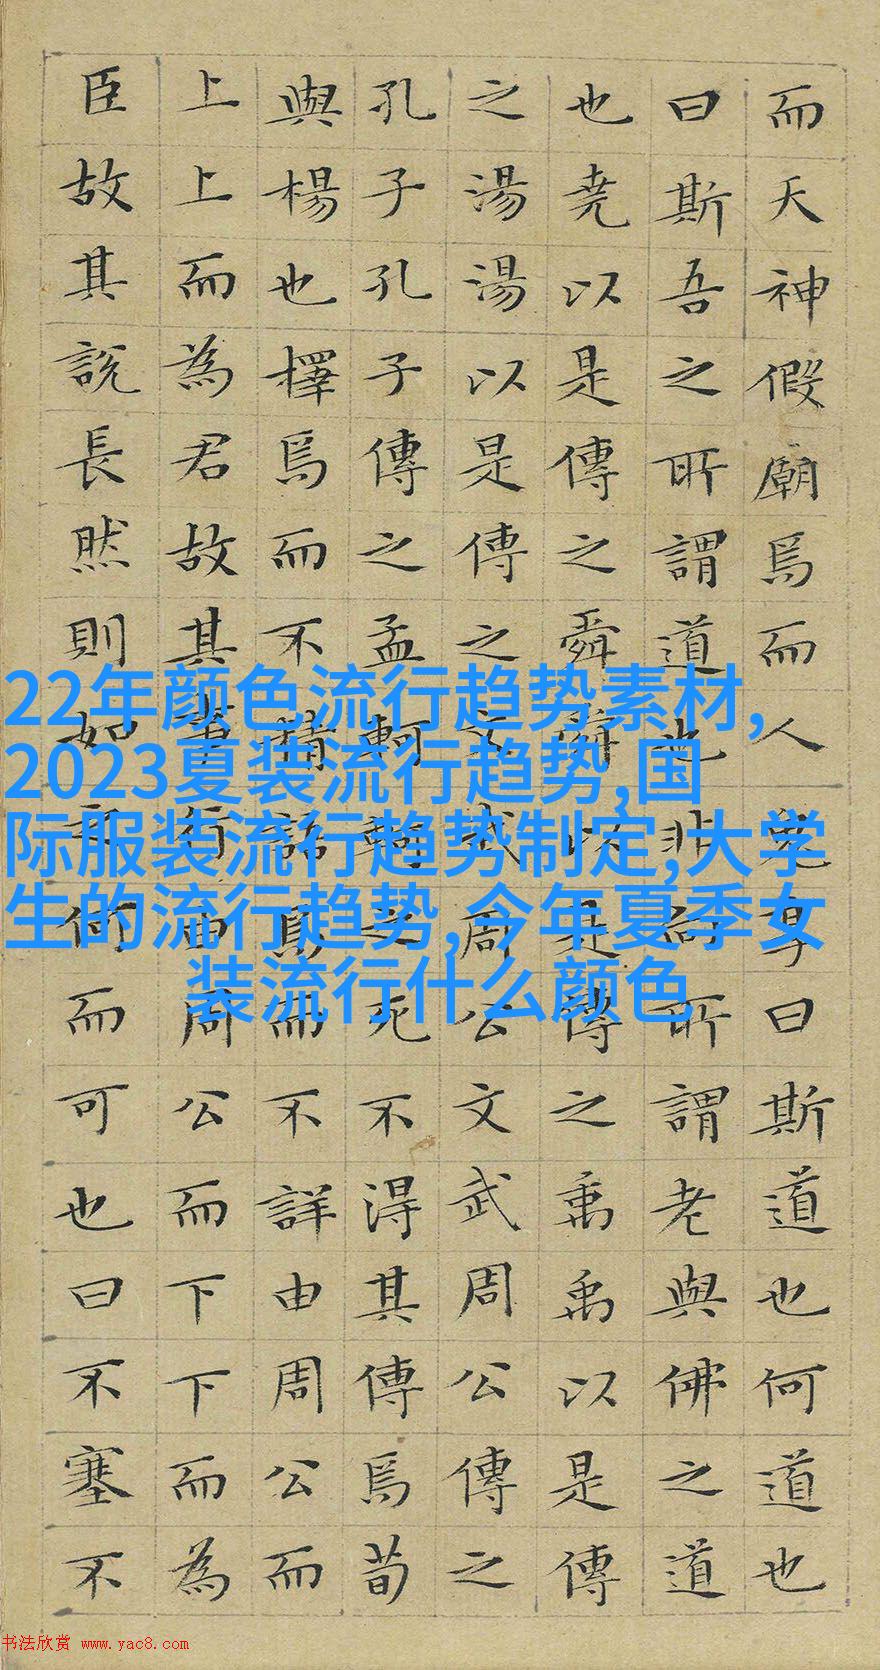 而天神假廟焉而人鬼享曰斯道也何道也
曰斯吾之所謂道也非向所謂老與佛之道
也堯以是傳之舜舜以是傳之禹禹以是傳
之湯湯以是傳之文武周公文武周公傳之
孔子孔子傳之孟軻軻之死不得其傳焉荀
與楊也擇焉而不精語焉而不詳由周公而
上上而為君故其事行由周公而下下而為
臣故其說長然則如之何而可也曰不塞不
22年颜色流行趋势素材,
2023夏装流行趋势,国
际服装流行趋势制定,大学
生的流行趋势,今年夏季女
装流行什么颜色
书法欣赏 www.yac8.com